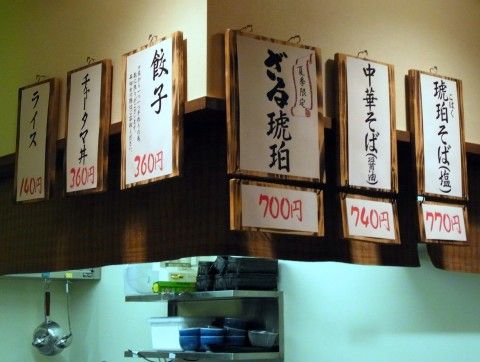 琥珀そば(塩)
こはく
770円
中華そば(醤油)
740円
夏季限定
ざる琥珀
700円
餃子
360円
チャータマ丼
360円
ライス
140円